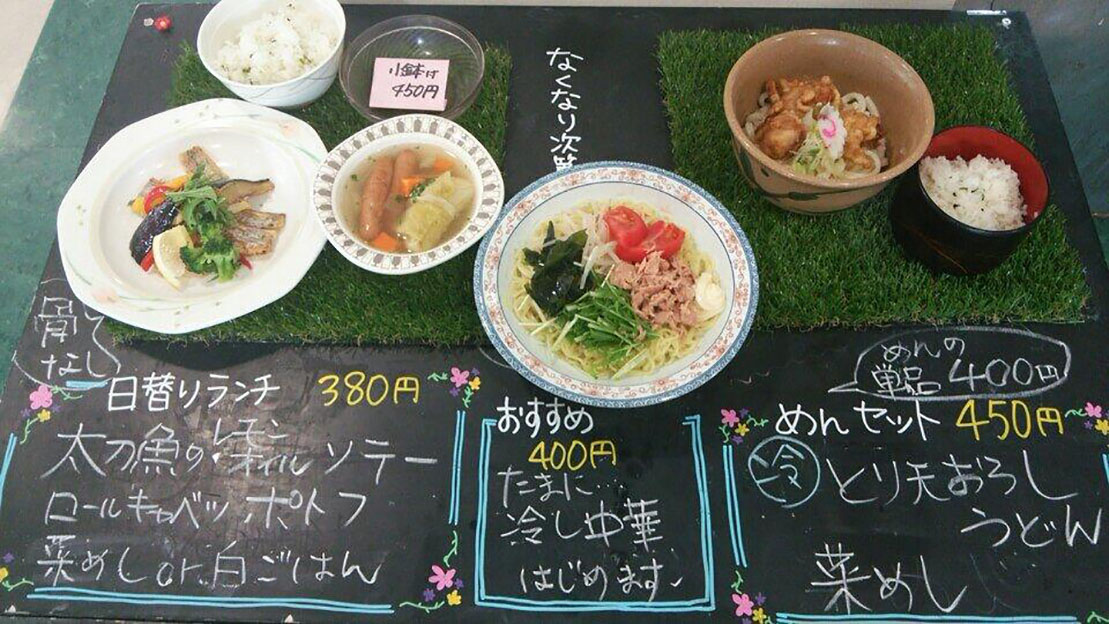 小鉢付
450円
なくなり次第
骨
なし
日替りランチ 380円
太刀魚のレモンオイルソテー
ロールキャベツポトフ
菜めしor白ごはん
おすすめ
400円
たまに…
冷し中華
はじめます
めんの
単品400円
めんセット 450円
冷 とり天おろし
うどん
菜めし